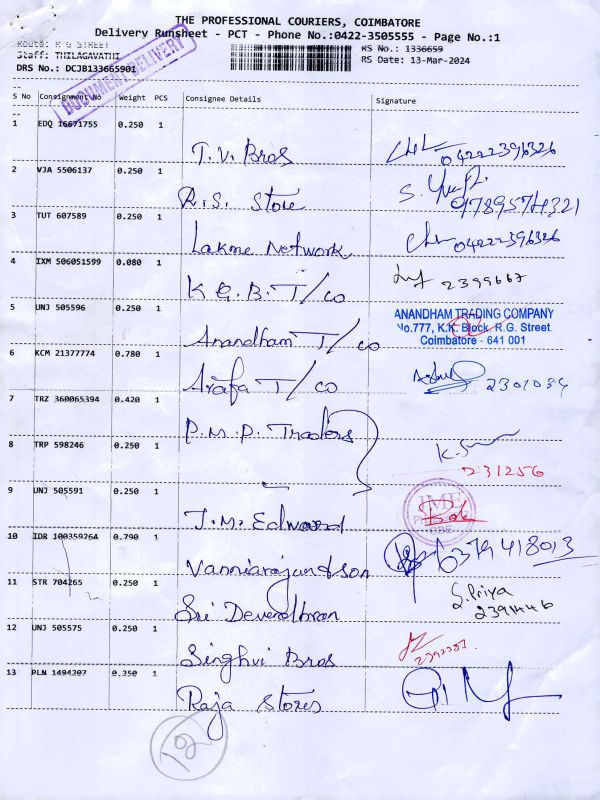 THE PROFESSIONAL COURIERS, COIMBATORE
Delivery Runsheet - PCT - Phone No.:0422-3505555 - Page No.:1
Route: R G STREET
Staff: THILAGAVATHI
DRS No.: DCJB133665901
RS No.: 1336659
RS Date: 13-Mar-2024
DOCUMENT DELIVERY
S No Consignment No Weight PCS Consignee Details Signature
1 EDQ 16671755 0.250 1
T.V. Bros 04222396326
2 VJA 5506137 0.250 1
R.S. Store 9789574321
3 TUT 607589 0.250 1
Lakme Network 04222396326
4 IXM 506051599 0.080 1
K G. B. T/co 2399667
5 UNJ 505596 0.250 1
ANANDHAM TRADING COMPANY
No.777, K.K. Block, R.G. Street
Coimbatore - 641 001
Anandham T/co
6 KCM 21377774 0.780 1
Arafa T/co 2301034
7 TRZ 360065394 0.420 1
P.M.P. Traders
8 TRP 598246 0.250 1
231256
9 UNJ 505591 0.250 1
J.M. Edward
10 IDR 100359264 0.790 1
Vanniarajan & son 6379418013
11 STR 704265 0.250 1
S. Priya
Sri Devendhran
12 UNJ 505575 0.250 1
Singhvi Bros
13 PLN 1494207 0.250 1
Raja Stores